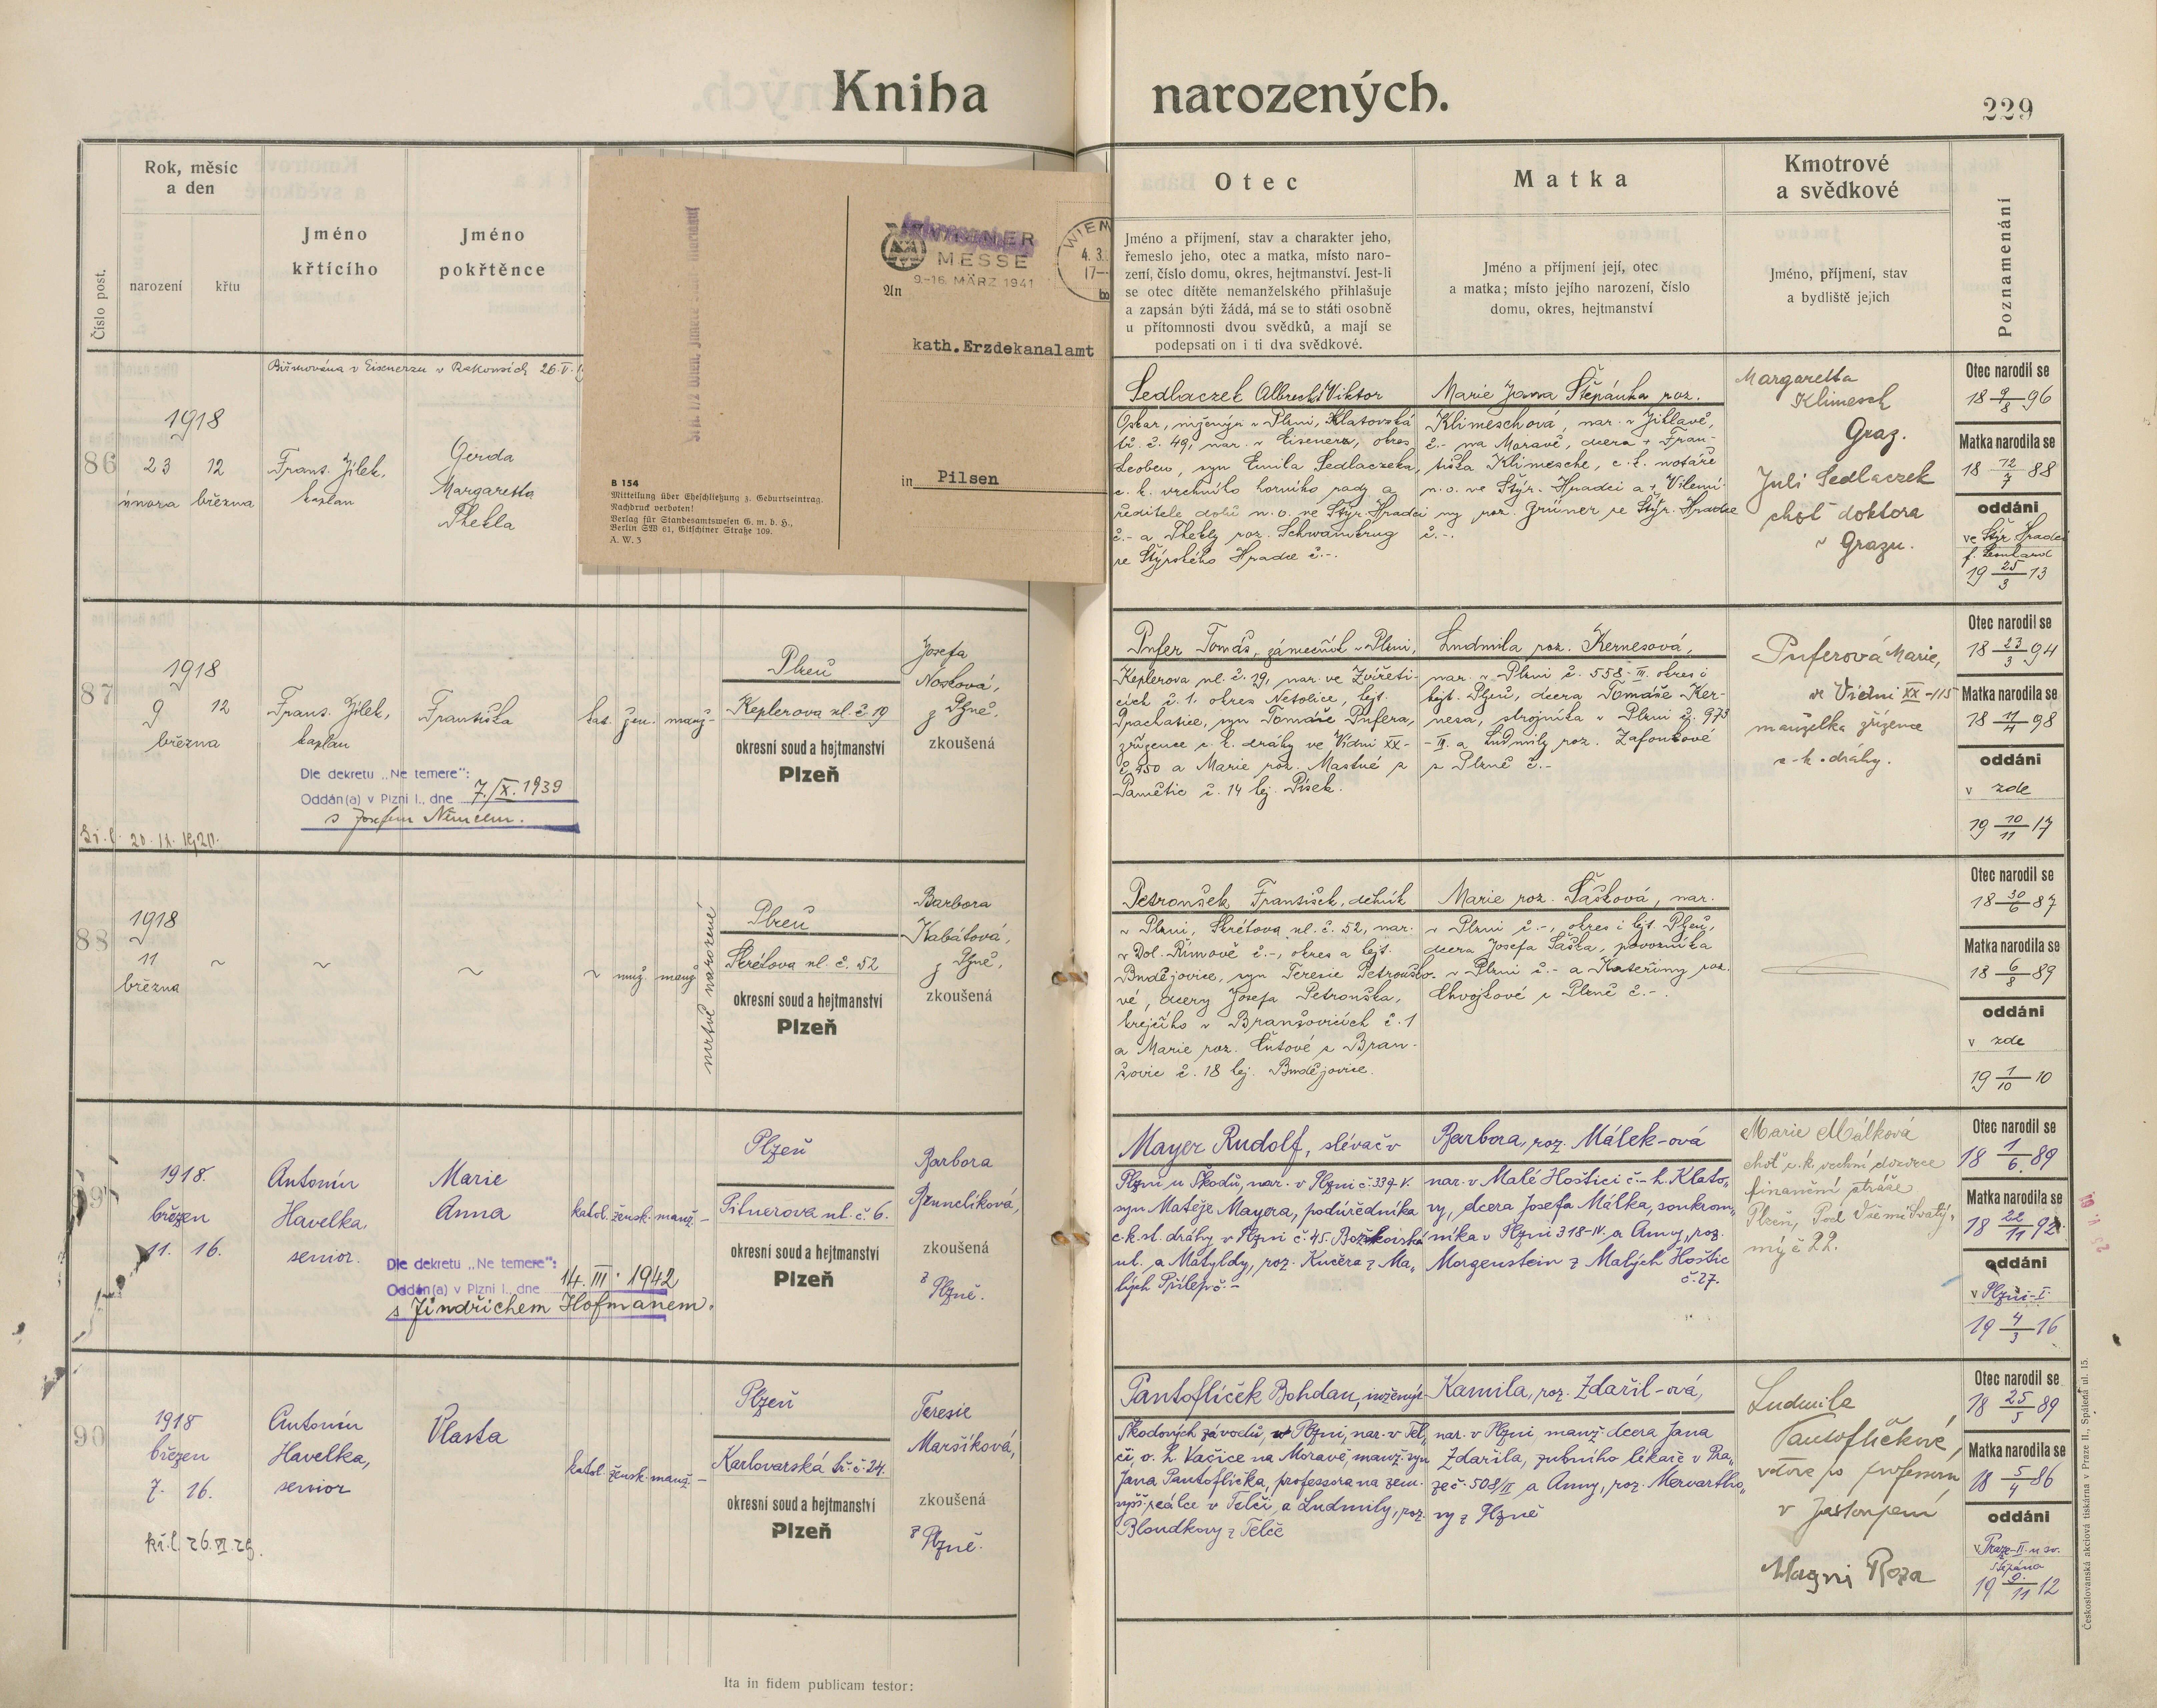 Kniha narozených.
229
Číslo post.
Rok, měsíc
a den
narození
křtu
Jméno
křtícího
Jméno
pokřtěnce
Otec
Jméno a příjmení, stav a charakter jeho,
řemeslo jeho, otec a matka, místo naro-
zení, číslo domu, okres, hejtmanství. Jest-li
se otec dítěte nemanželského přihlašuje
a zapsán býti žádá, má se to státi osobně
u přítomnosti dvou svědků, a mají se
podepsati on i ti dva svědkové.
Matka
Jméno a příjmení její, otec
a matka; místo jejího narození, číslo
domu, okres, hejtmanství
Kmotrové
a svědkové
Jméno, příjmení, stav
a bydliště jejich
Poznamenání
WIENER
MESSE
9.-16. MÄRZ 1941
WIEN
4.3.
17-
An
kath.Erzdekanalamt
in Pilsen
B 154
Mitteilung über Eheschließung z. Geburtseintrag.
Nachdruck verboten!
Verlag für Standesamtswesen G. m. b. H.,
Berlin SW 61, Gitschiner Straße 109.
A. W. 3
Biřmována v Eisenerzu v Rakousích 26. V.
86
1918
23 12
února března
Frant. Jílek,
kaplan
Gerda
Margaretta
Thekla
Sedlaczek Albrecht Viktor
Oskar, inženýr v Plzni, Klatovská
tř. č. 49, nar. v Eisenerz, okres
Leoben, syn Emila Sedlaczeka,
c. k. vrchního horního rady a
ředitele dolů n. o. ve Štýr. Hradci
č.- a Thekly roz. Schwamkrug
ze Štýrského Hradce č.-.
Marie Jana Štěpánka roz.
Klimeschová, nar. v Jihlavě,
č.- na Moravě, dcera + Fran-
tiška Klimesche, c. k. notáře
n. o. ve Štýr. Hradci a + Vilemí-
ny roz. Grüner ze Štýr. Hradce
č.-.
Margaretta
Klimesch
Graz.
Juli Sedlaczek
choť doktora
v Grazu.
Otec narodil se
18 9/8 96
Matka narodila se
18 12/7 88
oddáni
ve Štýr. Hradci
f. Leonhard
19 25/3 13
87
1918
9 12
března
Frant. Jílek,
kaplan
Františka
kat. žen. manž-
Plzeň
Keplerova ul. č. 19
okresní soud a hejtmanství
Plzeň
Josefa
Nosková,
z Plzně,
zkoušená
Dle dekretu „Ne temere“:
Oddán(a) v Plzni I., dne 7./X. 1939
s Josefem Němcem.
Kř. l. 20. 11. 1920.
Pufer Tomáš, zámečník v Plzni,
Keplerova ul. č. 19, nar. ve Zvířeti-
cích č. 1. okres Netolice, hejt.
Prachatice, syn Tomáše Pufera,
zřízence c. k. dráhy ve Vídni XX-
č. 450 a Marie roz. Mastné z
Pamětic č. 14 hej. Písek.
Ludmila roz. Kernesová,
nar. v Plzni č. 558-III. okres i
hejt. Plzeň, dcera Tomáše Ker-
nesa, strojníka v Plzni č. 973
-III. a Ludmily roz. Zafoukové
z Plzně č.-
Puferová Marie,
ve Vídni XX-115
manželka zřízence
c.-k. dráhy.
Otec narodil se
18 23/3 94
Matka narodila se
18 11/4 98
oddáni
v zde
19 10/11 17
88
1918
11
března
~ ~ ~ ~
muž. manž
mrtvě narozené
Plzeň
Skrétova ul. č. 52
okresní soud a hejtmanství
Plzeň
Barbora
Kabátová,
z Plzně,
zkoušená
Petroušek František, dělník
v Plzni, Skrétova ul. č. 52, nar.
v Dol. Římově č.-, okres a hejt.
Budějovice, syn Teresie Petrouško-
vé, dcery Josefa Petrouška,
krejčího v Branšovicích č. 1
a Marie roz. Čutové z Bran-
šovic č. 18 hej. Budějovice.
Marie roz. Šašková, nar.
v Plzni č.-, okres i hejt. Plzeň,
dcera Josefa Šaška, povozníka
v Plzni č.- a Kateřiny roz.
Chvojkové z Plzně č.-.
Otec narodil se
18 30/6 87
Matka narodila se
18 6/8 89
oddáni
v zde
19 1/10 10
89
1918.
březen
11. 16.
Antonín
Havelka
senior.
Marie
Anna
katol. žensk. manž. -
Plzeň
Pitnerova ul. č. 6.
okresní soud a hejtmanství
Plzeň
Barbora
zkoušená
z Plzně.
Dle dekretu „Ne temere“:
Oddán(a) v Plzni I., dne 14. III. 1942
s Jindřichem Hofmanem.
Mayer Rudolf, slévač v
Plzni u Škodů, nar. v Plzni č. 339-V.
syn Matěje Mayera, podúředníka
c. k. st. dráhy v Plzni č. 45. Božkovská
ul. a Matyldy, roz. Kučera z Ma„
lých Přílep č.-
Barbora, roz. Málek-ová
nar. v Malé Hoštici č.- h. Klato„
vy, dcera Josefa Málka, soukrom„
níka v Plzni 318-IV. a Anny, roz.
Morgenstein z Malých Hoštic
č. 27.
Marie Málková
choť c. k. vrchní dozorce
finanční stráže
Plzeň, Pod Všemi Svatý„
mi č 22.
Otec narodil se
18 1/6. 89
Matka narodila se
18 22/11 92
oddáni
v Plzni-I.
19 4/3 16
90
1918
březen
7. 16.
kř. l. 26. VI. 29.
Antonín
Havelka,
senior
Vlasta
katol. žensk. manž. -
Plzeň
Karlovarská tř. č. 24.
okresní soud a hejtmanství
Plzeň
Teresie
Maršíková,
zkoušená
z Plzně.
Pantoflíček Bohdan, inženýr
Škodových závodů, v Plzni, nar. v Tel„
či, o. h. Dačice na Moravě, manž. syn
Jana Pantoflíčka, professora na zem.
vyšš. reálce v Telči, a Ludmily, roz.
Bloudkovy z Telče
Kamila, roz. Zdařil-ová,
nar. v Plzni manž. dcera Jana
Zdařila, zubního lékaře v Pra„
ze č. 508/II a Anny, roz. Mervartho„
vy z Plzně
Ludmila
Pantoflíčkové,
vdova po professoru
v zastoupení
Magni Roza
Otec narodil se
18 25/5 89
Matka narodila se
18 5/4 86
oddáni
v Praze-II. u sv.
Štěpána
19 9./11 12
Ita in fidem publicam testor:
Českoslovanská akciová tiskárna v Praze II., Spálená ul. 15.